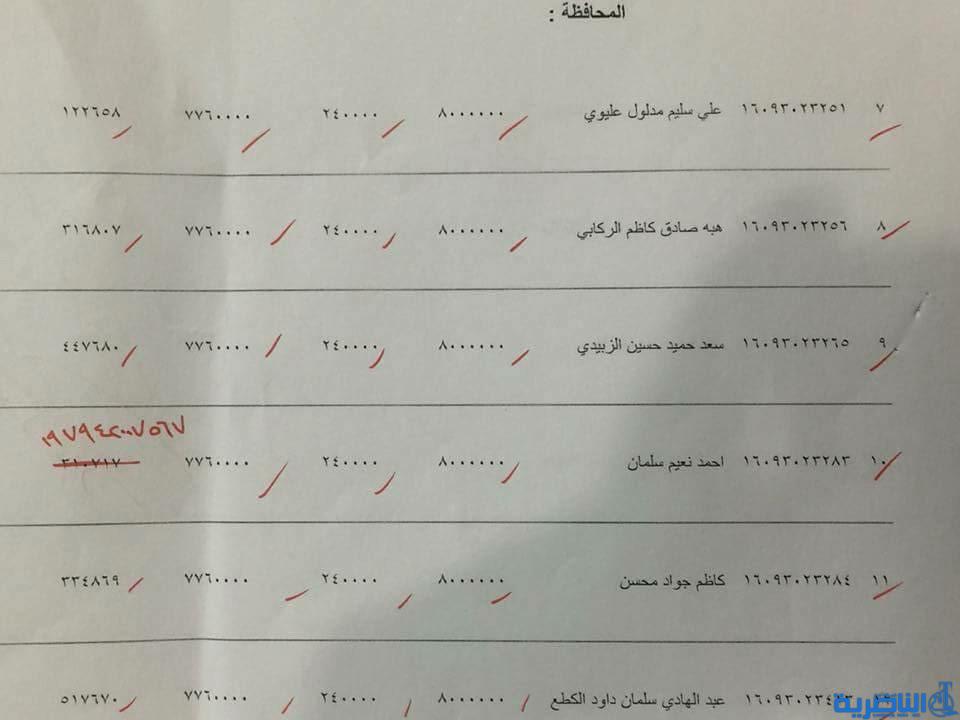 المحافظة :
٧ ١٦٠٩٣٠٢٣٢٥١ علي سليم مدلول عليوي ٨٠٠٠٠٠٠ ٢٤٠٠٠٠ ٧٧٦٠٠٠٠ ١٢٢٦٥٨
٨ ١٦٠٩٣٠٢٣٢٥٦ هبه صادق كاظم الركابي ٨٠٠٠٠٠٠ ٢٤٠٠٠٠ ٧٧٦٠٠٠٠ ٣١٦٨٠٧
٩ ١٦٠٩٣٠٢٣٢٦٥ سعد حميد حسين الزبيدي ٨٠٠٠٠٠٠ ٢٤٠٠٠٠ ٧٧٦٠٠٠٠ ٤٤٧٦٨٠
١٠ ١٦٠٩٣٠٢٣٢٨٣ احمد نعيم سلمان ٨٠٠٠٠٠٠ ٢٤٠٠٠٠ ٧٧٦٠٠٠٠ ٣١٠٧١٧
١١ ١٦٠٩٣٠٢٣٢٨٤ كاظم جواد محسن ٨٠٠٠٠٠٠ ٢٤٠٠٠٠ ٧٧٦٠٠٠٠ ٣٣٤٨٦٩
عبد الهادي سلمان داود الكطع ٨٠٠٠٠٠٠ ٢٤٠٠٠٠ ٧٧٦٠٠٠٠ ٥١٧٦٧٠
الناصرية